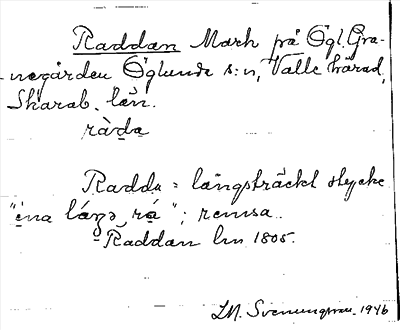 Raddan Mark på Ögl. Gra-
negården Öglunda s:n, Valle härad,
Skarab. län.
ràḍa
Radda = långsträckt stycke
"ena láŋə rá"; remsa.
Raddan lm 1805.
L.M. Svenungsson. 1946